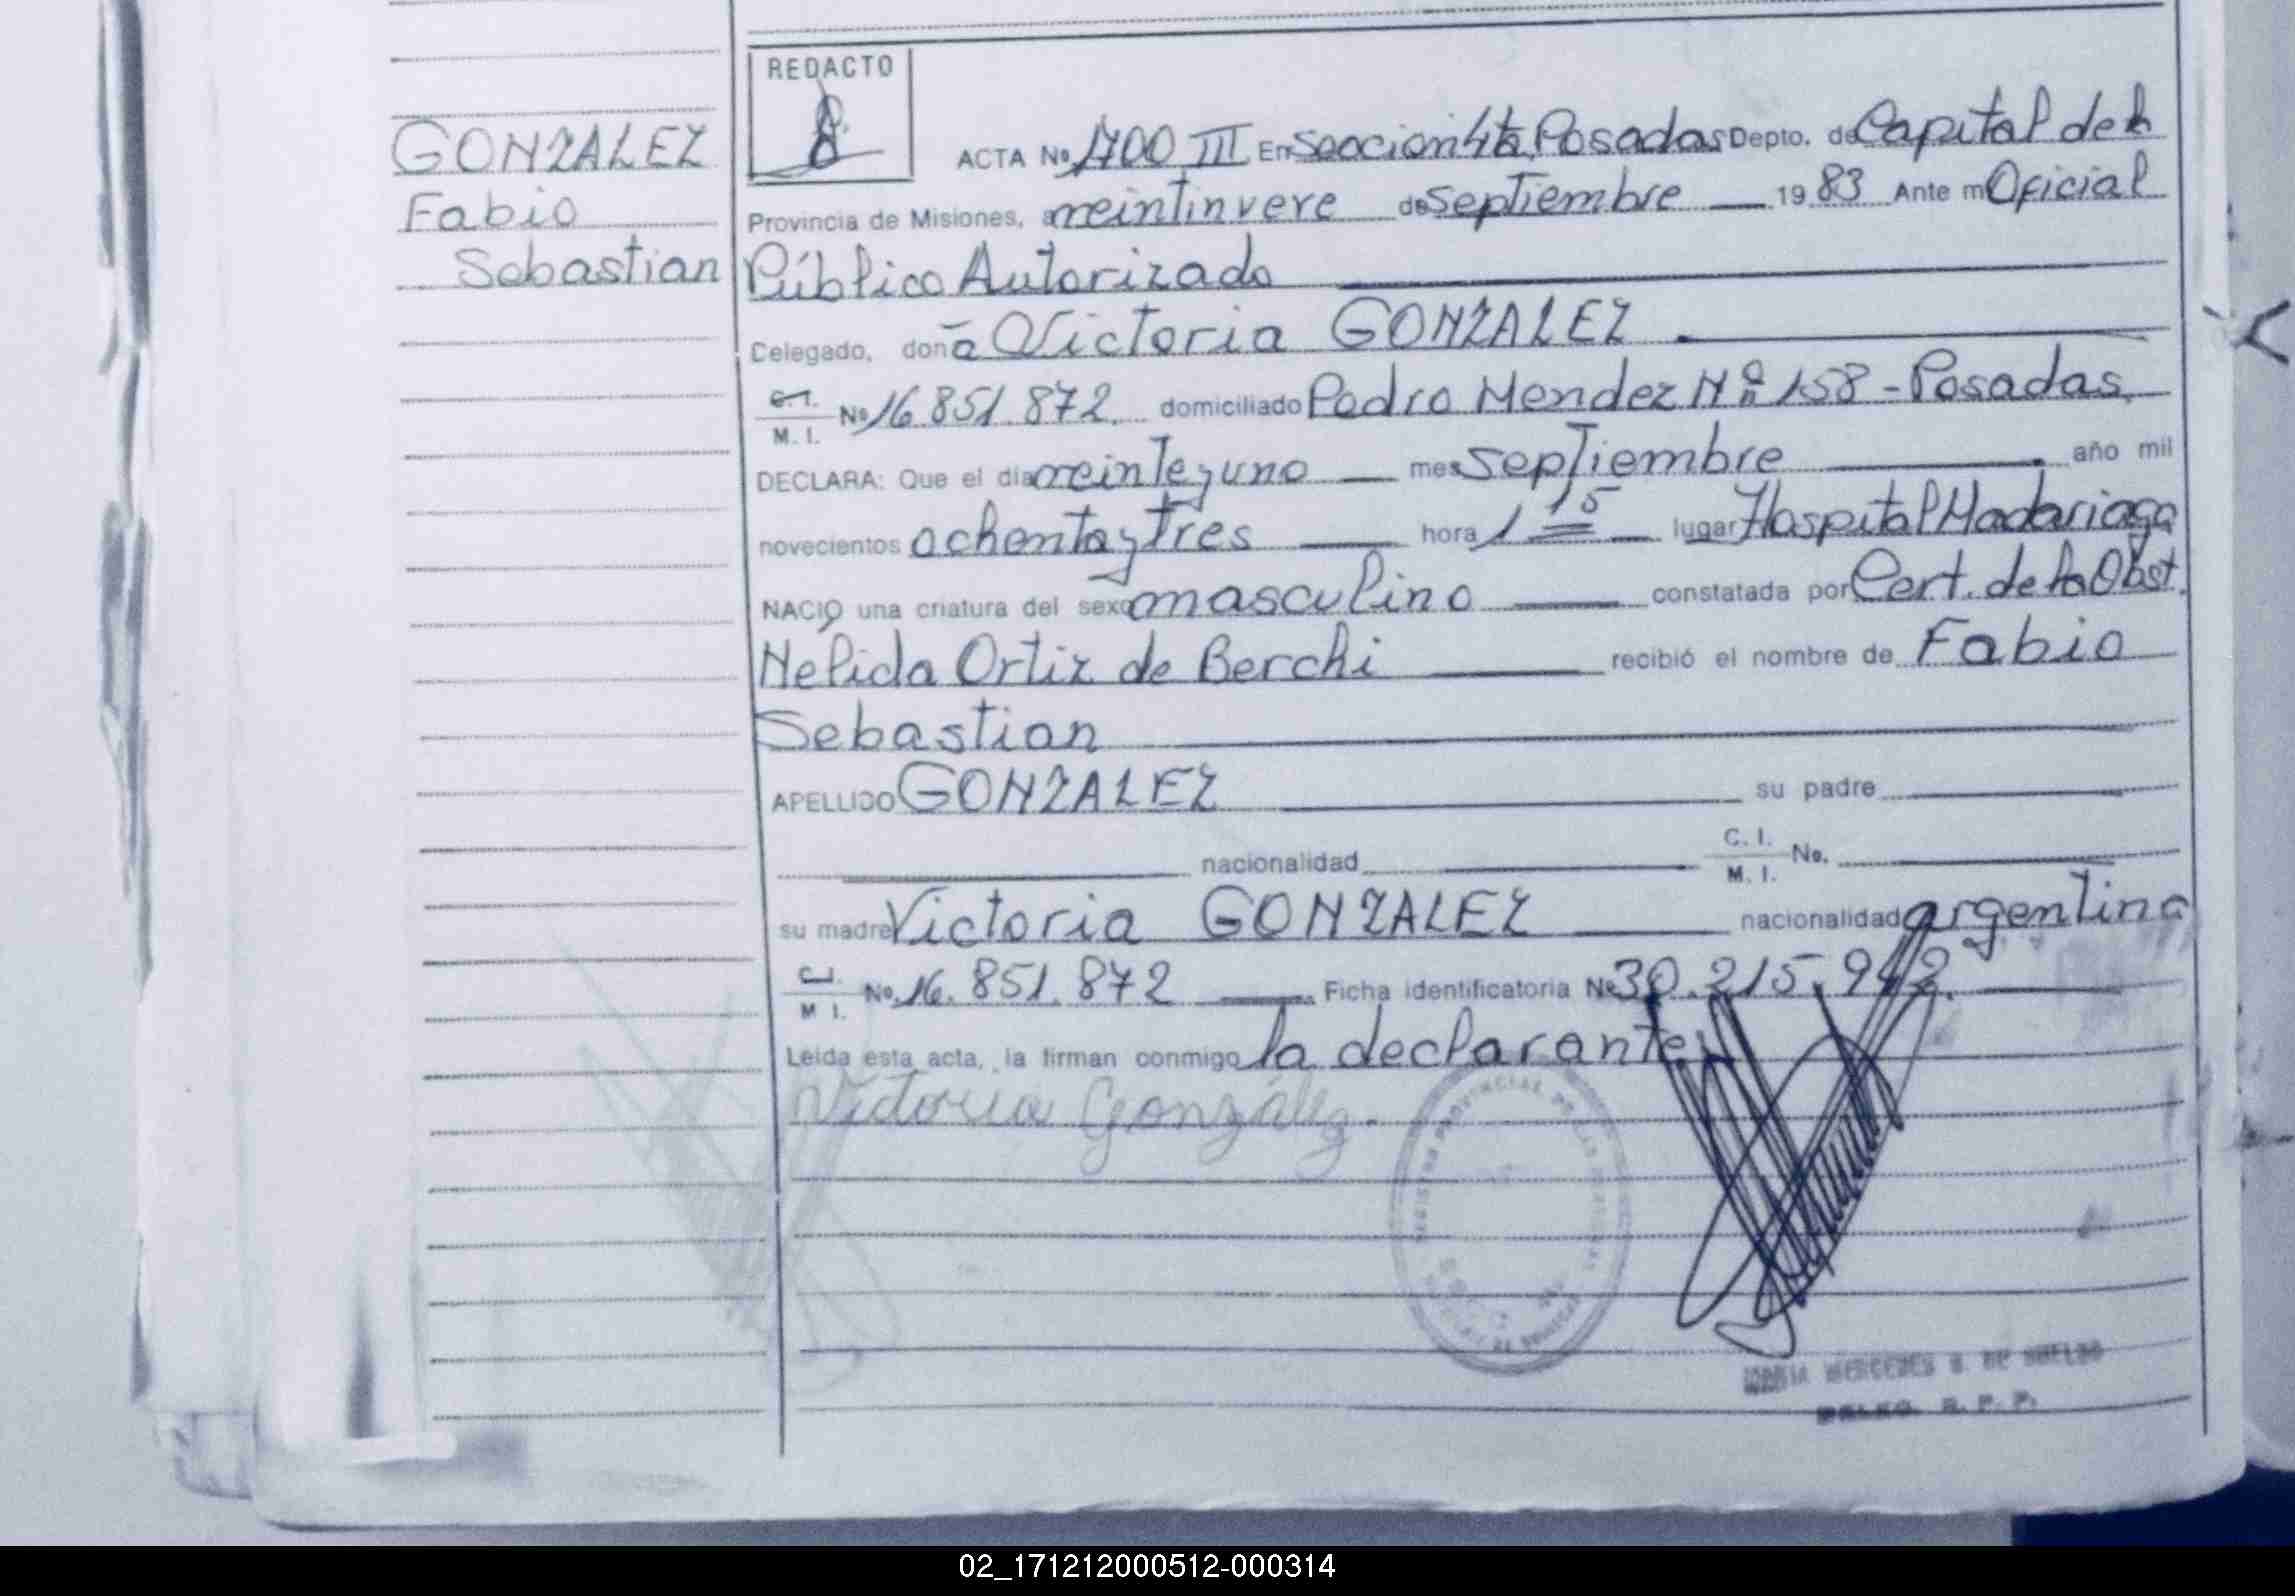 GONZALEZ
Fabio
Sebastian
REDACTO
ACTA No 1700 III En Seccion 4ta Posadas Depto. de Capital de la
Provincia de Misiones, a veintinveve de Septiembre 19 83 Ante mi Oficial
Público Autorizado
Celegado, doña Victoria GONZALEZ
C.I. M. I. No 16.851.872. domiciliado Pedro Mendez Nº 158 - Posadas.
DECLARA: Que el dia veinteyuno mes Septiembre año mil
novecientos ochentaytres hora 1 15 lugar Hospital Madariaga
NACIO una criatura del sexo masculino constatada por Cert. de la Obst.
Nelida Ortiz de Berchi recibió el nombre de Fabio
Sebastian
APELLIDO GONZALEZ su padre
nacionalidad C. I. M. I. No.
su madre Victoria GONZALEZ nacionalidad argentina
C.I. M I. No. 16.851.872 Ficha identificatoria Nº 30.215.942.
Leida esta acta, la firman conmigo la declarante
Victoria González.
REGISTRO PROVINCIAL DE LAS PERSONAS
MARIA MERCEDES DE
R. P. P.
02_171212000512-000314